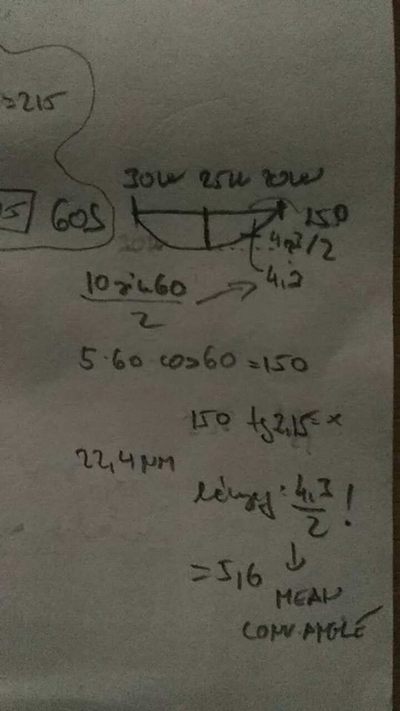 =215
60S
30W 25W 20W
150
4,3/2
4,3
10 sin 60
2
5·60 cos 60 = 150
150 tg 2,15 = x
22,4 NM
4,3
2 !
= 5,6
MEAN
CONV. ANGLE